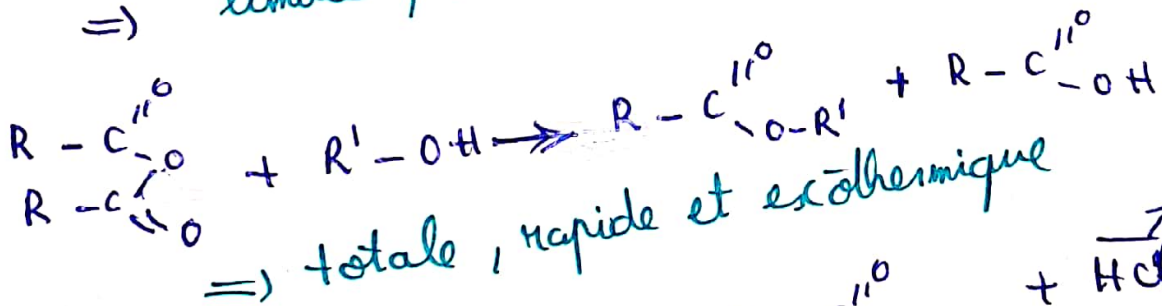 =>
R - C(=O) - O - C(=O) - R + R' - OH ->> R - C(=O) - O - R' + R - C(=O) - OH
=> totale, rapide et exothermique
O + HCl